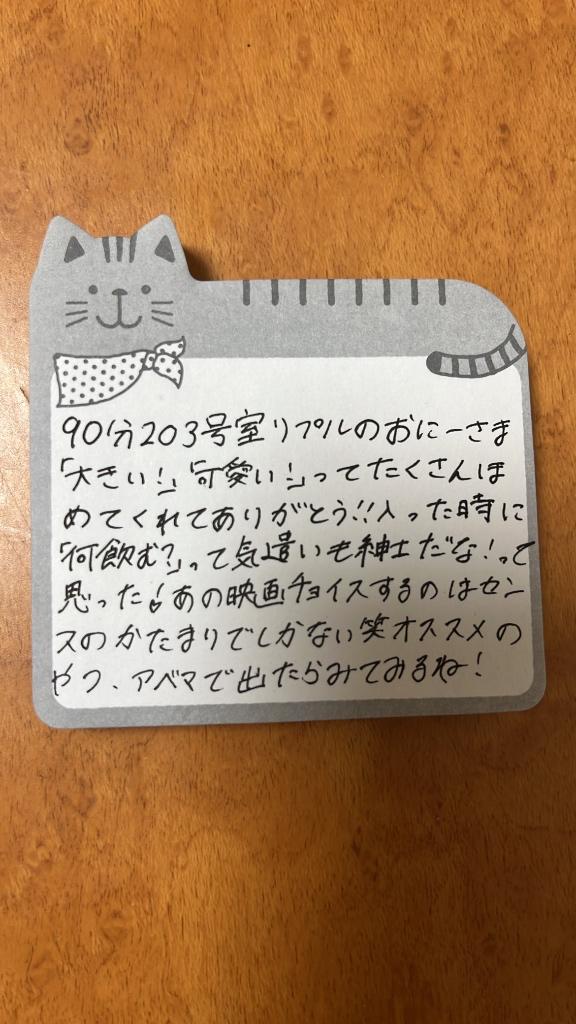 90分203号室リプルのおにーさま
「大きい！」「可愛い！」ってたくさんほ
めてくれてありがとう!!入った時に
「何飲む？」って気遣いも紳士だな！って
思った♪あの映画チョイスするのはセン
スのかたまりでしかない笑オススメの
やつ、アベマで出たらみてみるね！